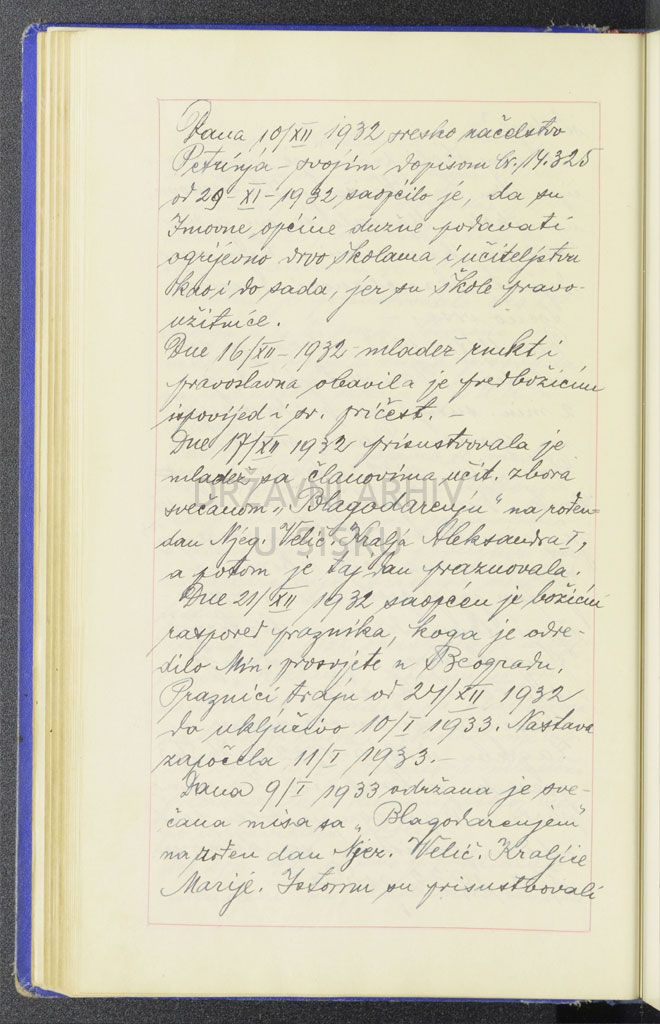 Dana 10/XII 1932 sresko načelstvo
Petrinja - svojim dopisom br. 14.325
od 29-XI-1932 saopćilo je, da su
Imovne općine dužne podavati
ogrijevno drvo školama i učiteljstvu
kao i do sada, jer su škole pravo-
užitnice.
Dne 16/XII-1932 mladež rimkt i
pravoslavna obavila je predbožićnu
ispovijed i sv. pričest. -
Dne 17/XII 1932 prisustvovala je
mladež sa članovima učit. zbora
svečanom „Blagodarenju" na rođen-
dan Njeg. Velič. Kralja Aleksandra I,
a potom je taj dan praznovala.
Dne 21/XII 1932 saopćen je božićni
raspored praznika, koga je odre-
dilo Min. prosvjete u Beogradu.
Praznici traju od 24/XII 1932
do uključivo 10/I 1933. Nastava
započela 11/I 1933. -
Dana 9/I 1933 održana je sve-
čana misa sa „Blagodarenjem"
na rođen dan Njez. Velič. Kraljice
Marije. Istomu su prisustvovali
DRŽAVNI ARHIV
U SISKU